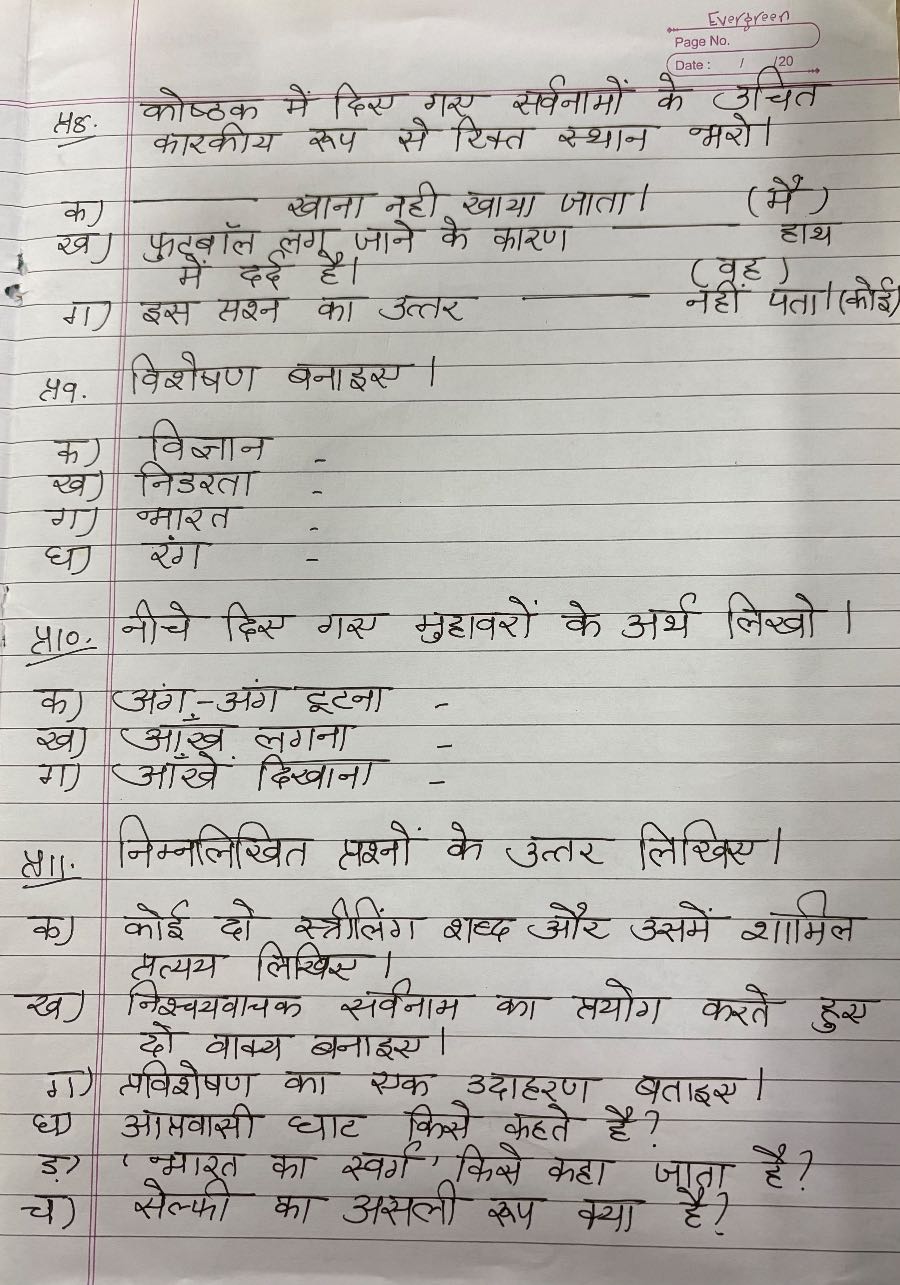 Evergreen
Page No.
Date : / /20
प्र8. कोष्ठक में दिए गए सर्वनामों के उचित
कारकीय रूप से रिक्त स्थान भरो।
क) ______ खाना नही खाया जाता। (मैं)
ख) फुटबॉल लग जाने के कारण ______ हाथ
में दर्द है। (वह)
ग) इस प्रश्न का उत्तर ______ नहीं पता। (कोई)
प्र9. विशेषण बनाइए।
क) विज्ञान -
ख) निडरता -
ग) भारत -
घ) रंग -
प्र10. नीचे दिए गए मुहावरों के अर्थ लिखो।
क) अंग-अंग टूटना -
ख) आँख लगना -
ग) आँखें दिखाना -
प्र11. निम्नलिखित प्रश्नों के उत्तर लिखिए।
क) कोई दो स्त्रीलिंग शब्द और उसमें शामिल
प्रत्यय लिखिए।
ख) निश्चयवाचक सर्वनाम का प्रयोग करते हुए
दो वाक्य बनाइए।
ग) प्रविशेषण का एक उदाहरण बताइए।
घ) आप्रवासी घाट किसे कहते है?
ङ) 'भारत का स्वर्ग' किसे कहा जाता है?
च) सेल्फी का असली रूप क्या है?